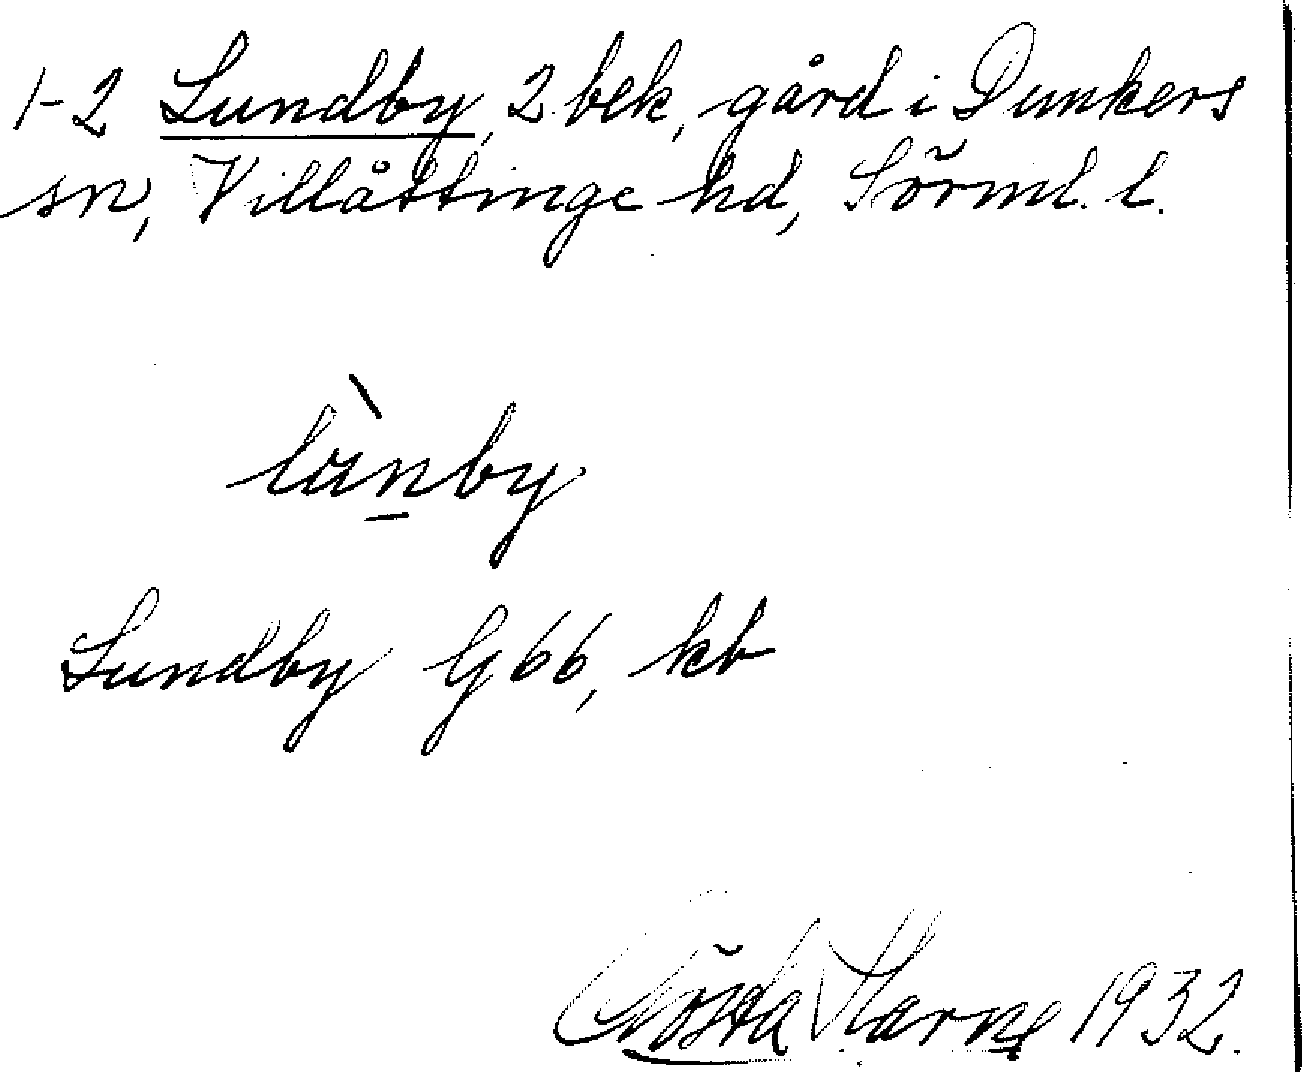 1-2 Lundby, 2 bek, gård i Dunkers
sn, Villåttinge hd, Sörml. l.
lùnby
Lundby G 66, kb
Gösta 1932.